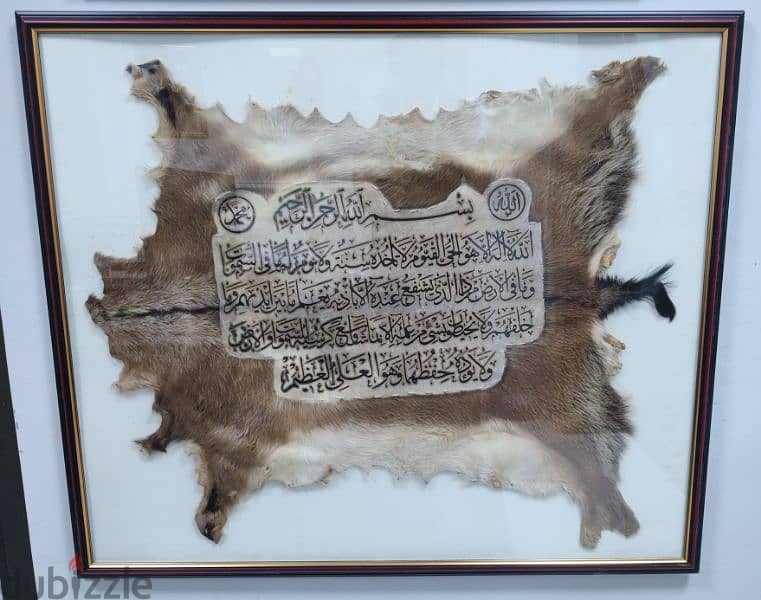 الله
بسم الله الرحمن الرحيم
محمد
الله لا إله إلا هو الحي القيوم لا تأخذه سنة ولا نوم له ما في السموات
وما في الأرض من ذا الذي يشفع عنده إلا بإذنه يعلم ما بين أيديهم وما
خلفهم ولا يحيطون بشيء من علمه إلا بما شاء وسع كرسيه السموات والأرض
ولا يؤده حفظهما وهو العلي العظيم
dubizzle